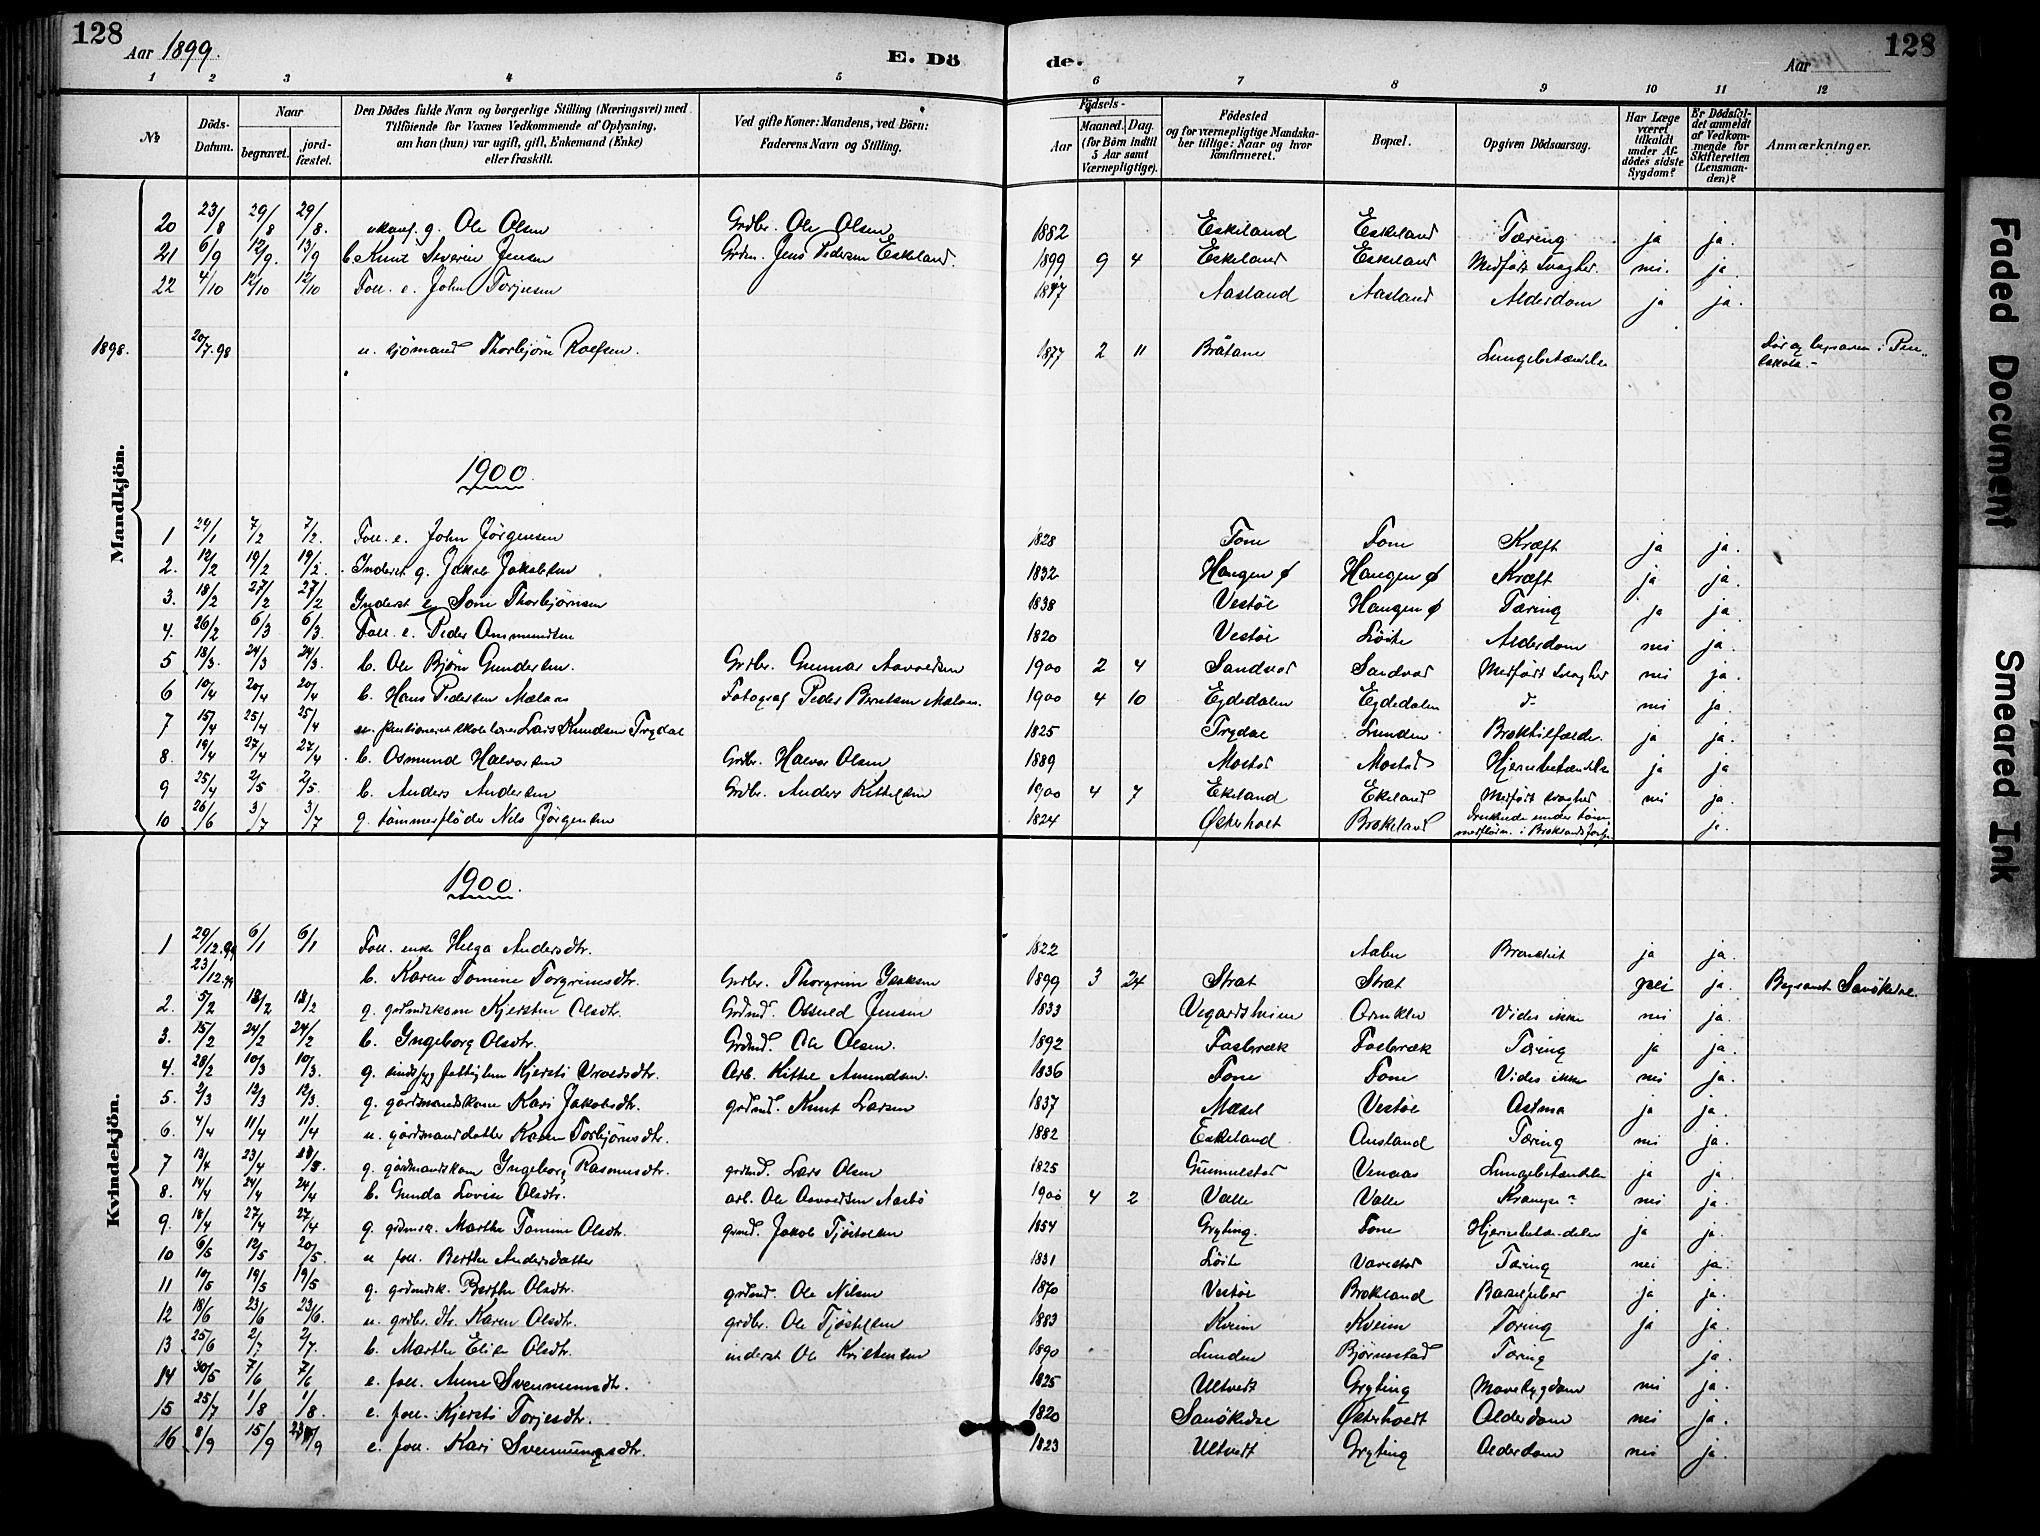 128
Aar 1899.
E. Dö
de.
Aar
128
1 2 3 4 5 6 7 8 9 10 11 12
№ Döds-Datum. Naar begravet. jordfæstet.
Den Dödes fulde Navn og borgerlige Stilling (Næringsvei) med Tilföiende for Voxnes Vedkommende af Oplysning, om han (hun) var ugift, gift, Enkemand (Enke) eller fraskilt.
Ved gifte Koner: Mandens, ved Börn: Faderens Navn og Stilling.
Födsels- Aar Maaned. Dag. (for Börn indtil 5 Aar samt Værnepligtige).
Födested og for værnepligtige Mandskaber tillige: Naar og hvor konfirmeret.
Bopæl.
Opgiven Dödsaarsag.
Har Læge været tilkaldt under Afdödes sidste Sygdom?
Er Dödsfaldet anmeldt af Vedkommende for Skifteretten (Lensmanden)?
Anmærkninger.
Mandkjön.
20 23/8 29/8 29/8. g. Ole Olsen Grdbr. Ole Olsen 1882 Eskeland Eskeland Tæring ja ja.
21 6/9 12/9. 13/9 b. Knut Severin Jensen Grdm. Jens Pedersen Eskeland. 1899 9 4 Eskeland Eskeland Medfødt Svaghed. nei. ja.
22 4/10 12/10 12/10 Foll. e. John Torjusen 1817 Aasland Aasland Alderdom ja ja.
1898. 20/7.98 u. sjömand Thorbjörn Roefsen. 1877 2 11 Bråtane Lungebetændelse Dör og begraven i Pensakola.-
1900.
1 29/1 7/2 7/2. Foll. e. John Jörgensen 1828 Tone Tone Kræft ja ja.
2. 12/2 19/2 19/2. Inderst g. Jakob Jakobsen 1832 Haugen ø Haugen ø Kræft ja ja.
3. 18/2 27/2 27/2 Inderst e. Sone Thorbjörnsen 1838 Vestöl Haugen ø Tæring ja ja.
4. 26/2 6/3 6/3. Foll. e. Peder Ommundsen 1820 Vestöl Löite Alderdom nei ja.
5 18/3. 24/3 24/3. b. Ole Björn Gundersen. Grdbr. Gunnar Aavoldsen 1900 2 4 Sandvad Sandvad Medfödt Svaghed nei ja.
6 10/4 20/4 20/4 b. Hans Pedersen Mælaas Fotograf Peder Berntsen Mælaas. 1900 4 10 Egdedalen Egdedalen d- nei ja.
7 15/4 25/4 25/4 u. pensioneret skolelærer Lars Knudsen Trydal 1825 Trydal Lunden Broktilfælde. ja ja.
8. 19/4 27/4 27/4 b. Osmund Halvorsen Grdbr. Halvor Olsen 1889 Mostad Mostad Hjernebetændelse ja ja
9 25/4 2/5 2/5. b. Anders Andersen Grdbr. Anders Kittelsen 1900 4 7 Ekeland Ekeland Medfödt svaghed nei ja.
10 26/6 3/7 3/7 g. tömmerflöder Nils Jörgensen 1824 Østerholt Brokeland Druknede under tömmerflödn. i Brokelandsfos ja.
Kvindekjön.
1900.
1 29/12.99 6/1 6/1 Foll. enke Helga Andersdtr. 1822 Aabu Bronkit ja ja.
23/12.99 b. Karen Tomine Torgrimsdtr. Grdbr. Thorgrim Isaksen 1899 3 24 Strat Strat nei ja. Begravet Sanökedal.
2. 5/2 18/2 18/2 g. grdmdskone Kjersten Olsdtr. Grdmd. Osuld Jensen 1833 Vegardsheien Ornkler Vides ikke nei ja.
3. 15/2 24/2 24/2 b. Ingeborg Olsdtr. Grdmd. Ole Olsen. 1892 Fosbræk Fosbræk Tæring ja ja.
4. 28/2 10/3 10/3. g. sindsyg fattiglem Kjersti Vroldsdtr. Arb. Kittel Amundsen. 1836 Tone Tone Vides ikke nei ja.
5. 2/3 12/3 12/3. g. gårdmandskone Kari Jakobsdtr. grdmd. Knut Larsen 1837 Mæsel Vestöl Astma ja ja.
6. 4/4 11/4 11/4 u. gårdmanddatter Karen Torbjörnsdtr. 1882 Eskeland Ausland Tæring nei ja.
7 13/4 23/4 g. gårdmandskone Ingeborg Rasmusdtr. grdmd. Lars Olsen 1825 Gummelstad Venaas Lungebetændelse ja ja.
8. 14/4 24/4 24/4 b. Gunda Lovise Olsdtr. arb. Ole Aavoldsen Aasbö 1900 4 2 Valle Valle Krampe? nei ja.
9. 18/4 27/4 27/4 g. grdmsk. Marthe Tomine Olsdtr. grmd. Jakob Tjöstolsen 1854 Gryting. Tone Hjernebetændelse ja ja.
10 6/5 12/5 20/5. u foll. Berthe Andersdatter 1831 Löite Varestad Tæring nei ja.
11 10/5 19/5 19/5 g. grdmdsk. Berthe Olsdtr. grdmd. Ole Nilsen 1870 Vestöl Brokeland Barselfeber ja ja.
12 18/6 23/6 23/6. u. grdbr. dtr. Karen Olsdtr. grdbr. Ole Tjöstolsen 1883 Kveim Kveim Tæring ja ja.
13 25/6 2/7 2/7. b. Marthe Elise Olsdtr. inderst Ole Kristensen 1890 Lunden Björnestad Tæring ja.
14 30/5 7/6 7/6 e. foll. Anne Svennumsdtr. 1825 Ultvedt Gryting Mavesygdom nei ja.
15 25/7 1/8 1/8. e. foll. Kjersti Torjesdtr. 1820 Sanökedal Østerholdt Alderdom nei ja.
16 8/9 15/9 23/9 e. foll. Kari Svennungsdtr. 1823 Ultvedt Gryting Alderdom nei ja.
Faded Document
Smeared Ink